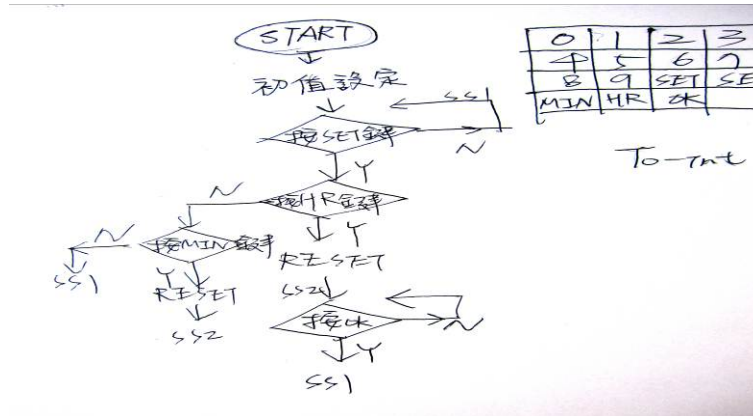 START
初值設定
SS1
按SET鍵
N
Y
按HR鍵
N
Y
RESET
按MIN鍵
N
SS1
Y
RESET
SS2
SS2
按OK
N
Y
SS1
0 1 2 3
4 5 6 7
8 9 SET SE
MIN HR OK
To-Int